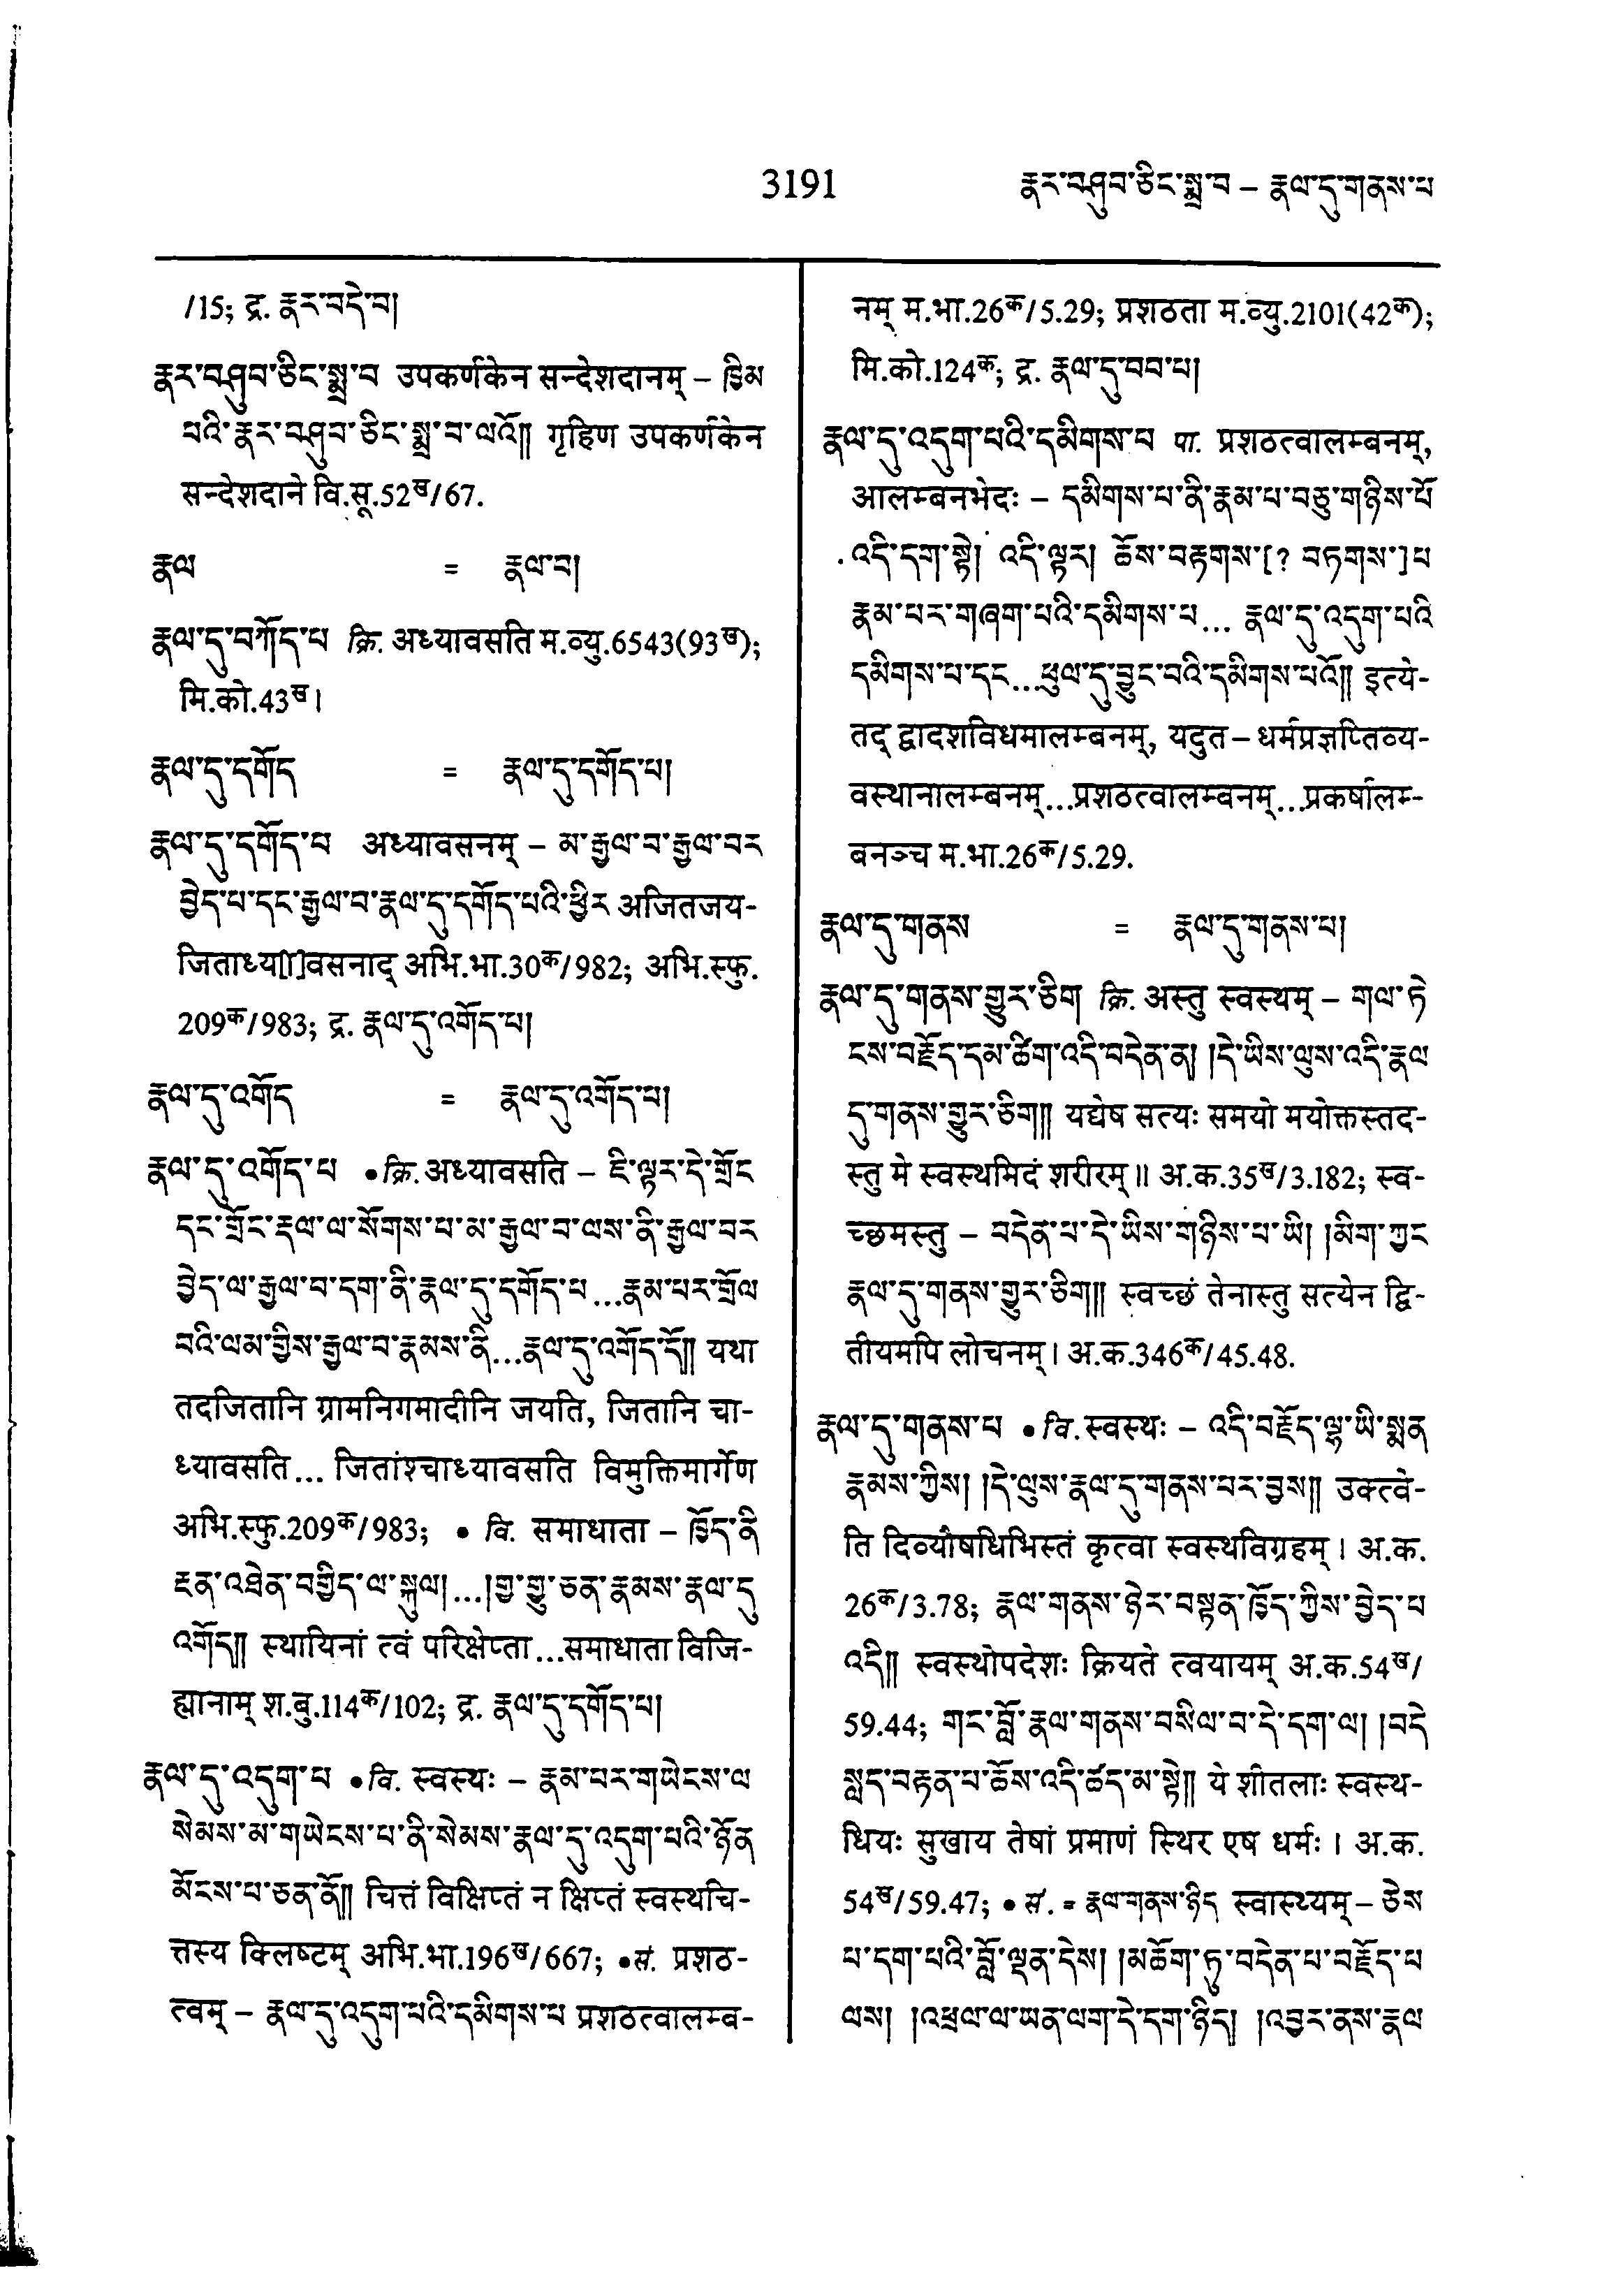 3191
རྣར་བཤུབ་ཅིང་སྨྲ་བ – རྣལ་དུ་གནས་པ
/15; द्र. རྣར་བདེ་བ།
རྣར་བཤུབ་ཅིང་སྨྲ་བ उपकर्णकेन सन्देशदानम् – ཁྱིམ
བའི་རྣར་བཤུབ་ཅིང་སྨྲ་བ་ལའོ།། गृहिण उपकर्णकेन
सन्देशदाने वि.सू.52ख/67.
རྣལ = རྣལ་བ།
རྣལ་དུ་བཀོད་པ क्रि. अध्यावसति म.व्यु.6543(93ख);
मि.को.43ख।
རྣལ་དུ་དགོད = རྣལ་དུ་དགོད་པ།
རྣལ་དུ་དགོད་པ अध्यावसनम् – མ་རྒྱལ་བ་རྒྱལ་བར
བྱེད་པ་དང་རྒྱལ་བ་རྣལ་དུ་དགོད་པའི་ཕྱིར अजितजय-
जिताध्य[ा]वसनाद् अभि.भा.30क/982; अभि.स्फु.
209क/983; द्र. རྣལ་དུ་འགོད་པ།
རྣལ་དུ་འགོད = རྣལ་དུ་འགོད་པ།
རྣལ་དུ་འགོད་པ • क्रि. अध्यावसति – ཇི་ལྟར་དེ་གྲོང
དང་གྲོང་རྡལ་ལ་སོགས་པ་མ་རྒྱལ་བ་ལས་ནི་རྒྱལ་བར
བྱེད་ལ་རྒྱལ་བ་དག་ནི་རྣལ་དུ་དགོད་པ...རྣམ་པར་གྲོལ
བའི་ལམ་གྱིས་རྒྱལ་བ་རྣམས་ནི...རྣལ་དུ་འགོད་དོ།། यथा
तदजितानि ग्रामनिगमादीनि जयति, जितानि चा-
ध्यावसति... जितांश्चाध्यावसति विमुक्तिमार्गेण
अभि.स्फु.209क/983; • वि. समाधाता – ཁྱོད་ནི
རྔན་འཐེན་བགྱིད་ལ་སྐུལ།...།གྱ་གྱུ་ཅན་རྣམས་རྣལ་དུ
འགོད།། स्थायिनां त्वं परिक्षेप्ता...समाधाता विजि-
ह्मानाम् श.बु.114क/102; द्र. རྣལ་དུ་དགོད་པ།
རྣལ་དུ་འདུག་པ • वि. स्वस्थः – རྣམ་པར་གཡེངས་ལ
སེམས་མ་གཡེངས་པ་ནི་སེམས་རྣལ་དུ་འདུག་པའི་ཉོན
མོངས་པ་ཅན་ནོ།། चित्तं विक्षिप्तं न क्षिप्तं स्वस्थचि-
त्तस्य क्लिष्टम् अभि.भा.196ख/667; • सं. प्रशठ-
त्वम् – རྣལ་དུ་འདུག་པའི་དམིགས་པ प्रशठत्वालम्ब-
नम् म.भा.26क/5.29; प्रशठता म.व्यु.2101(42क);
मि.को.124क; द्र. རྣལ་དུ་བབ་པ།
རྣལ་དུ་འདུག་པའི་དམིགས་པ पा. प्रशठत्वालम्बनम्,
आलम्बनभेदः – དམིགས་པ་ནི་རྣམ་པ་བཅུ་གཉིས་པོ
འདི་དག་སྟེ། འདི་ལྟར། ཆོས་བརྟགས་[? བཏགས་]པ
རྣམ་པར་གཞག་པའི་དམིགས་པ... རྣལ་དུ་འདུག་པའི
དམིགས་པ་དང...ཕུལ་དུ་བྱུང་བའི་དམིགས་པའོ།། इत्ये-
तद् द्वादशविधमालम्बनम्, यदुत – धर्मप्रज्ञप्तिव्य-
वस्थानालम्बनम्...प्रशठत्वालम्बनम्...प्रकर्षालम्-
बनञ्च म.भा.26क/5.29.
རྣལ་དུ་གནས = རྣལ་དུ་གནས་པ།
རྣལ་དུ་གནས་གྱུར་ཅིག क्रि. अस्तु स्वस्थम् – གལ་ཏེ
ངས་བརྗོད་དམ་ཚིག་འདི་བདེན་ན། །དེ་ཡིས་ལུས་འདི་རྣལ
དུ་གནས་གྱུར་ཅིག།། यद्येष सत्यः समयो मयोक्तस्तद-
स्तु मे स्वस्थमिदं शरीरम्॥ अ.क.35ख/3.182; स्व-
च्छमस्तु – བདེན་པ་དེ་ཡིས་གཉིས་པ་ཡི། །མིག་ཀྱང
རྣལ་དུ་གནས་གྱུར་ཅིག།། स्वच्छं तेनास्तु सत्येन द्वि-
तीयमपि लोचनम्। अ.क.346क/45.48.
རྣལ་དུ་གནས་པ • वि. स्वस्थः – འདི་བརྗོད་ལྷ་ཡི་སྨན
རྣམས་ཀྱིས། །དེ་ལུས་རྣལ་དུ་གནས་པར་བྱས།། उक्त्वे-
ति दिव्यौषधिभिस्तं कृत्वा स्वस्थविग्रहम्। अ.क.
26क/3.78; རྣལ་གནས་ཉེར་བསྟན་ཁྱོད་ཀྱིས་བྱེད་པ
འདི།། स्वस्थोपदेशः क्रियते त्वयायम् अ.क.54ख/
59.44; གང་བློ་རྣལ་གནས་བསིལ་བ་དེ་དག་ལ། །བདེ
སླད་བརྟན་པ་ཆོས་འདི་ཚད་མ་སྟེ།། ये शीतलाः स्वस्थ-
धियः सुखाय तेषां प्रमाणं स्थिर एष धर्मः। अ.क.
54ख/59.47; • सं. = རྣལ་གནས་ཉིད स्वास्थ्यम् – ཅེས
པ་དག་པའི་བློ་ལྡན་དེས། །མཆོག་ཏུ་བདེན་པ་བརྗོད་པ
ལས། །འཕྲལ་ལ་ཡན་ལག་དེ་དག་ཉིད། །འབྱར་ནས་རྣལ